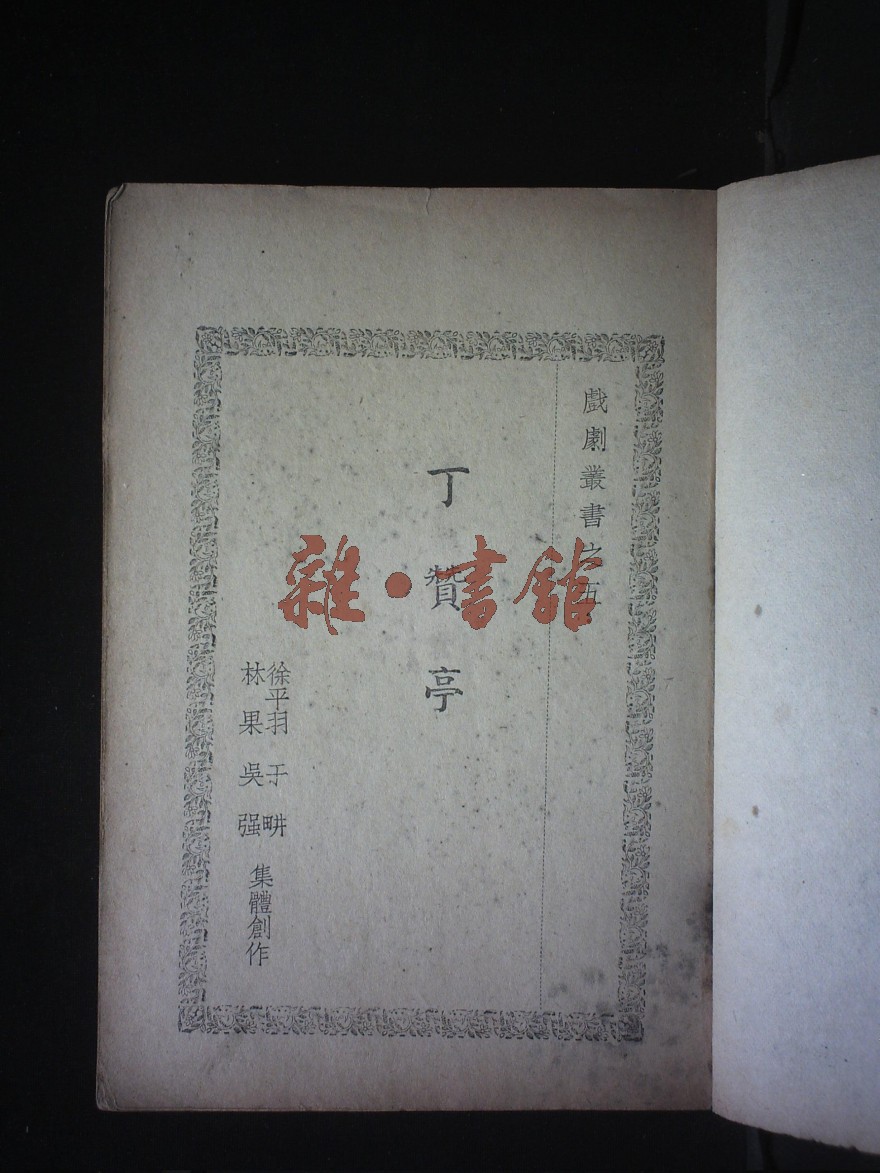 戲劇叢書之五
丁贊亭
徐平羽 于畊
林果 吳强
集體創作
雜·書館